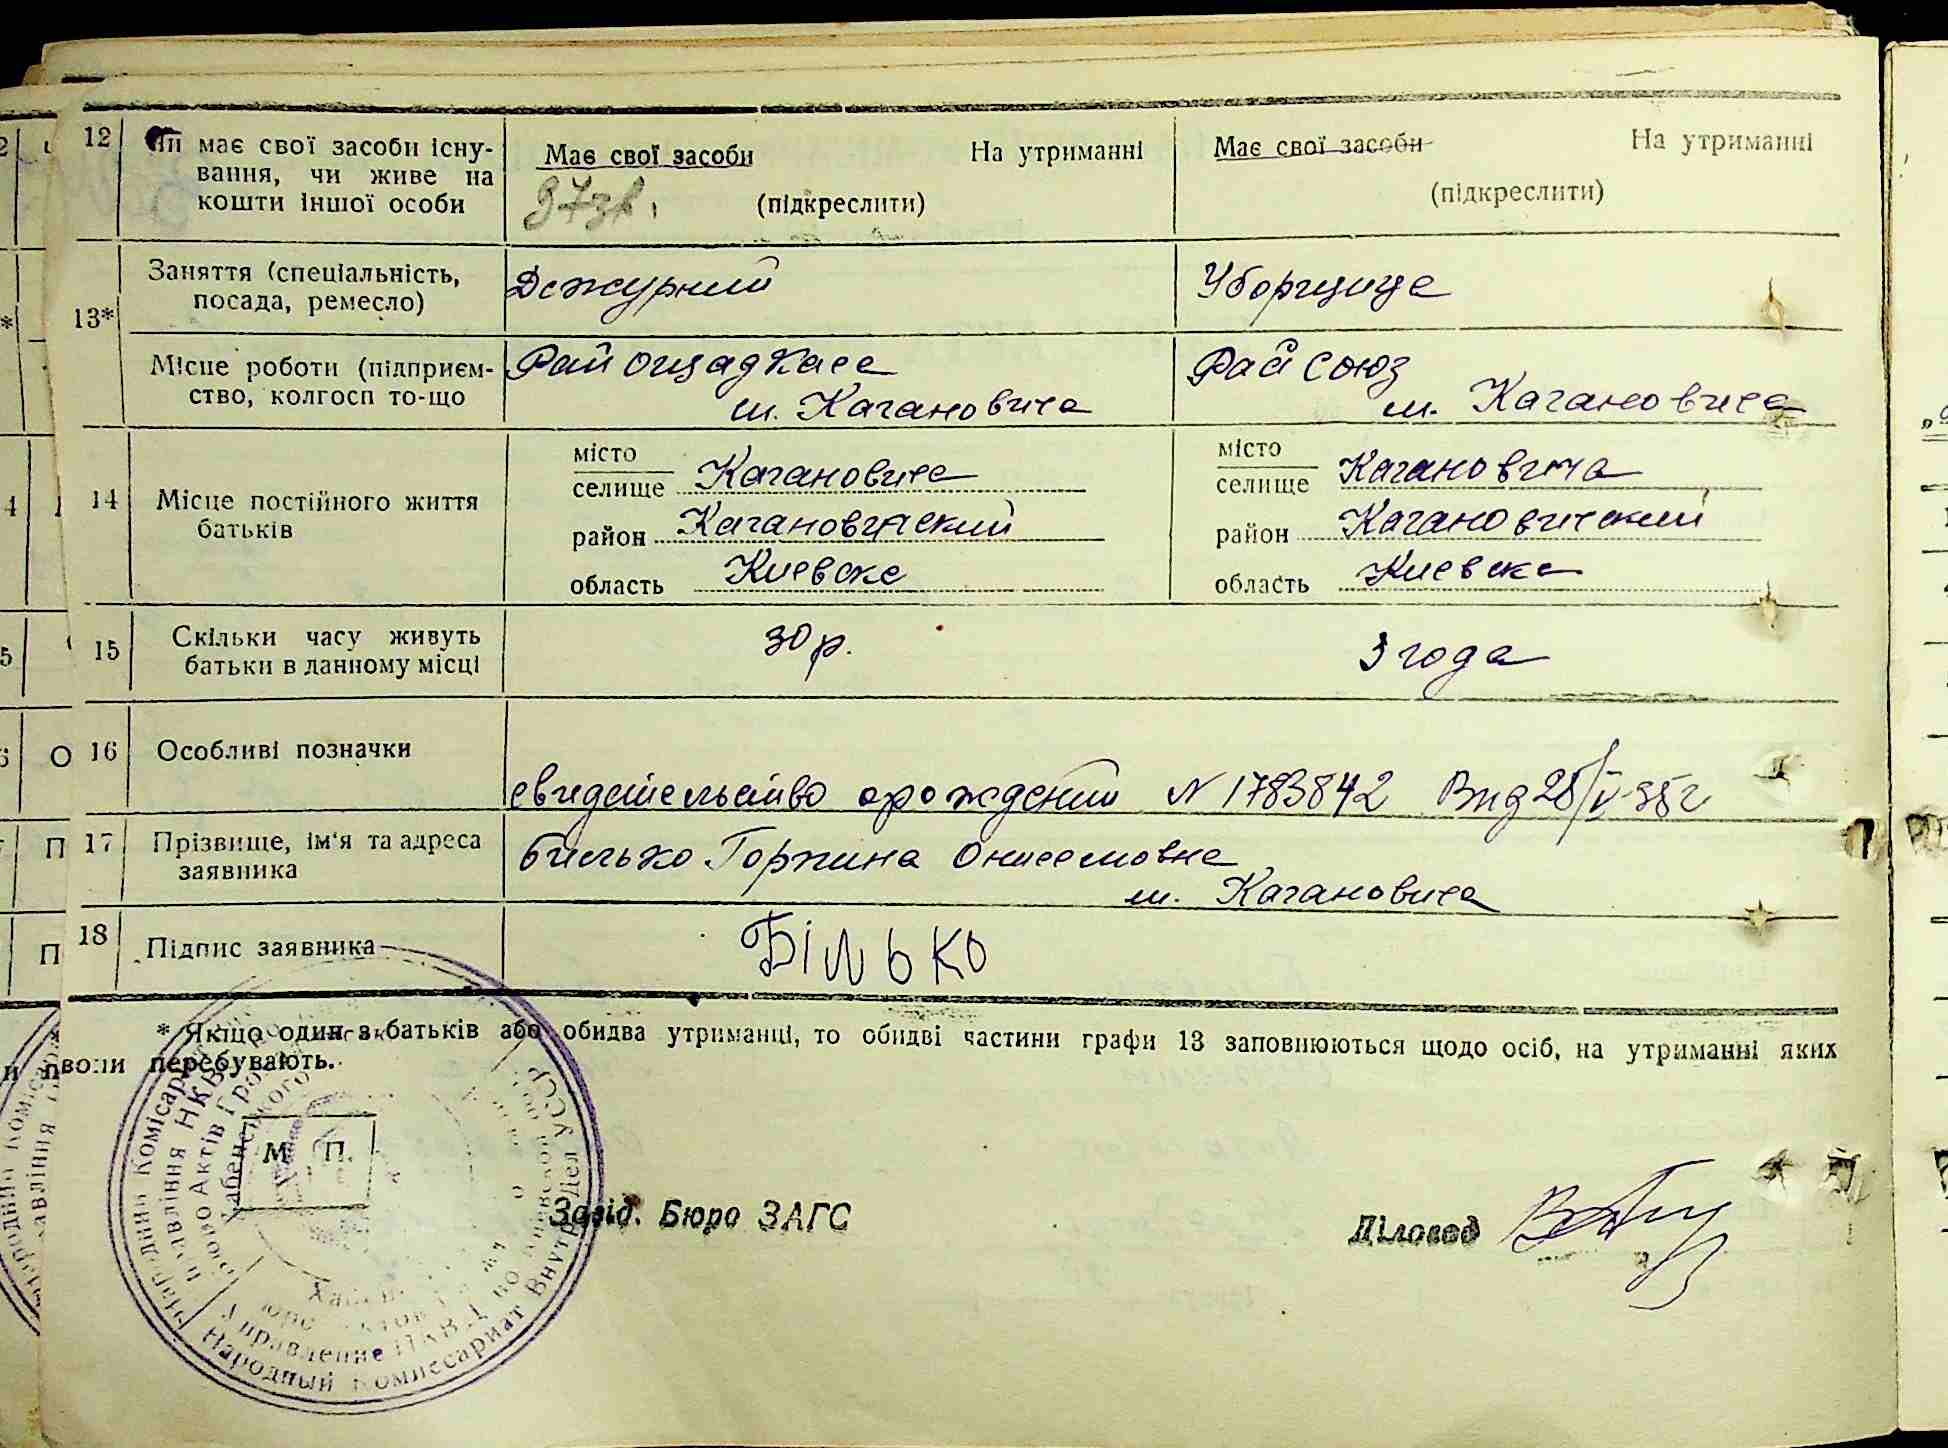 12 Чи має свої засоби існу-
вання, чи живе на
кошти іншої особи
Має свої засоби На утриманні
(підкреслити)
Має свої засоби На утриманні
(підкреслити)
13*
Заняття (спеціальність,
посада, ремесло)
Дежурний
Уборщица
Місце роботи (підприєм-
ство, колгосп то-що
Рай ощадкаса
м. Кагановича
Рай союз
м. Кагановича
14 Місце постійного життя
батьків
місто
селище Кагановича
район Кагановичский
область Киевска
місто
селище Кагановича
район Кагановичский
область Киевска
15 Скільки часу живуть
батьки в данному місці
30 р.
3 года
16 Особливі позначки
свидетельство о рождении № 1783842
17 Прізвище, ім'я та адреса
заявника
Билько Онисемовна
м. Кагановича
18 Підпис заявника
Білько
* Якщо один з батьків або обидва утриманці, то обидві частини графи 13 заповнюються щодо осіб, на утриманні яких
вони перебувають.
М. П.
Завід. Бюро ЗАГС
Діловод
Народный Комиссариат Внутр дел УССР
Управление НКВД по Киевской